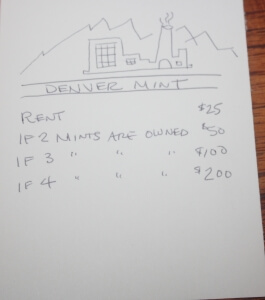 DENVER MINT
RENT $25
IF 2 MINTS ARE OWNED $50
IF 3 " " " $100
IF 4 " " " $200